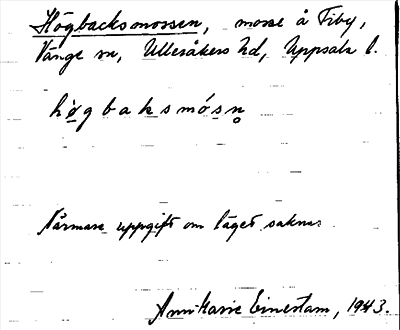 Högbacksmossen, mosse å Fiby,
Vänge sn, Ulleråkers hd, Uppsala l.
hø̣gbaksmós̲n̥
Närmare uppgift om läget saknas.
Ann-Marie Einestam, 1943.